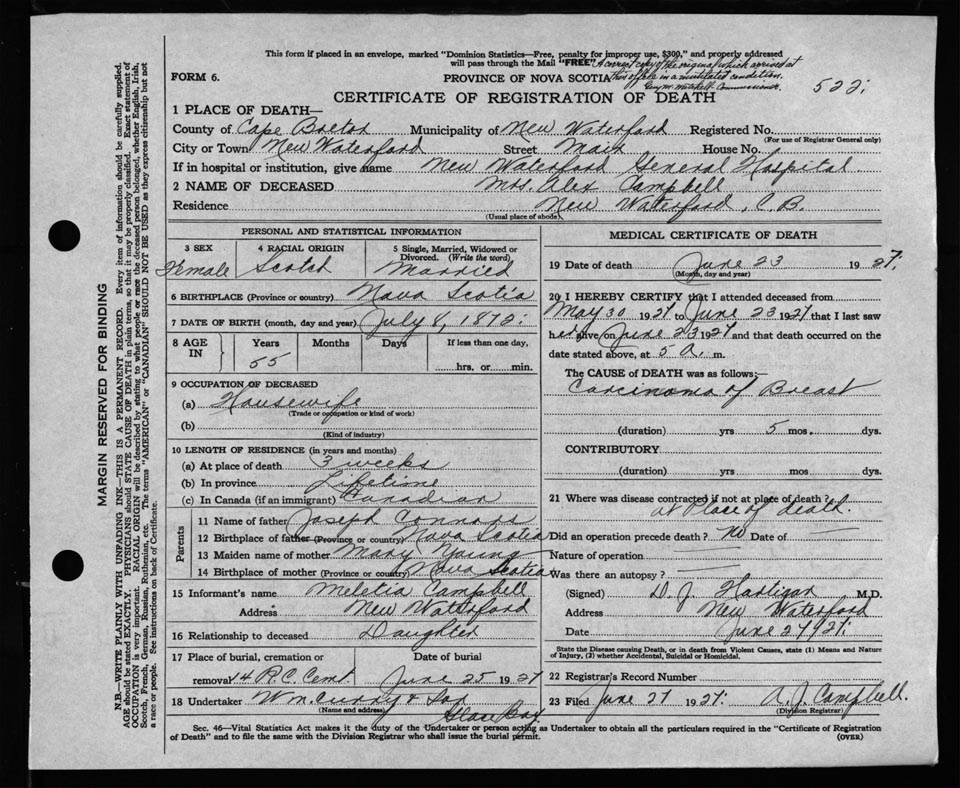 This form if placed in an envelope, marked "Dominion Statistics—Free, penalty for improper use, $300," and properly addressed
will pass through the Mail "FREE"
A correct copy of the original which arrived at
this office in a mutilated condition.
Commissioner.
522
FORM 6.
PROVINCE OF NOVA SCOTIA
CERTIFICATE OF REGISTRATION OF DEATH
1 PLACE OF DEATH—
County of Cape Breton Municipality of New Waterford Registered No.
(For use of Registrar General only)
City or Town New Waterford Street Main House No.
If in hospital or institution, give name New Waterford General Hospital
2 NAME OF DECEASED Mrs. Alex Campbell
Residence New Waterford, C.B.
(Usual place of abode)
PERSONAL AND STATISTICAL INFORMATION
3 SEX Female
4 RACIAL ORIGIN Scotch
5 Single, Married, Widowed or Divorced. (Write the word) Married
6 BIRTHPLACE (Province or country) Nova Scotia
7 DATE OF BIRTH (month, day and year) July 8, 1872.
8 AGE IN Years 55 Months Days If less than one day, hrs. or min.
9 OCCUPATION OF DECEASED
(a) Housewife
(Trade or occupation or kind of work)
(b)
(Kind of industry)
10 LENGTH OF RESIDENCE (in years and months)
(a) At place of death 3 weeks
(b) In province Lifetime
(c) In Canada (if an immigrant) Canadian
Parents
11 Name of father Joseph Connors
12 Birthplace of father (Province or country) Nova Scotia
13 Maiden name of mother Mary Young
14 Birthplace of mother (Province or country) Nova Scotia
15 Informant's name Campbell
Address New Waterford
16 Relationship to deceased Daughter
17 Place of burial, cremation or removal R.C. Cemt. Date of burial June 25 1927
18 Undertaker Wm Curry & Son
(Name and address) Glace Bay.
MEDICAL CERTIFICATE OF DEATH
19 Date of death June 23 1927.
(Month, day and year)
20 I HEREBY CERTIFY that I attended deceased from
May 30 1927 to June 23 1927 that I last saw
her alive on June 23 1927 and that death occurred on the
date stated above, at 5 a. m.
The CAUSE of DEATH was as follows:—
Carcinoma of Breast
(duration) yrs 5 mos. dys.
CONTRIBUTORY
(duration) yrs. mos. dys.
21 Where was disease contracted if not at place of death?
at Place of death.
Did an operation precede death? No Date of
Nature of operation
Was there an autopsy?
(Signed) D. J. Hartigan M.D.
Address New Waterford
Date June 24/27.
State the Disease causing Death, or in death from Violent Causes, state (1) Means and Nature
of Injury, (2) whether Accidental, Suicidal or Homicidal.
22 Registrar's Record Number
23 Filed June 27 1927. A. J. Campbell.
(Division Registrar)
Sec. 46—Vital Statistics Act makes it the duty of the Undertaker or person acting as Undertaker to obtain all the particulars required in the "Certificate of Registration
of Death" and to file the same with the Division Registrar who shall issue the burial permit.
(OVER)
MARGIN RESERVED FOR BINDING
N.B.—WRITE PLAINLY WITH UNFADING INK—THIS IS A PERMANENT RECORD. Every item of information should be carefully supplied.
AGE should be stated EXACTLY. PHYSICIANS should STATE CAUSE OF DEATH in plain terms, so that it may be properly classified. Exact statement of
OCCUPATION is very important. RACIAL ORIGIN will be described by stating to what people or race the deceased person belonged, whether English, Irish,
Scotch, French, German, Russian, Ruthenian, etc. The terms "AMERICAN" or "CANADIAN" SHOULD NOT BE USED as they express citizenship but not
a race or people. See instructions on back of Certificate.